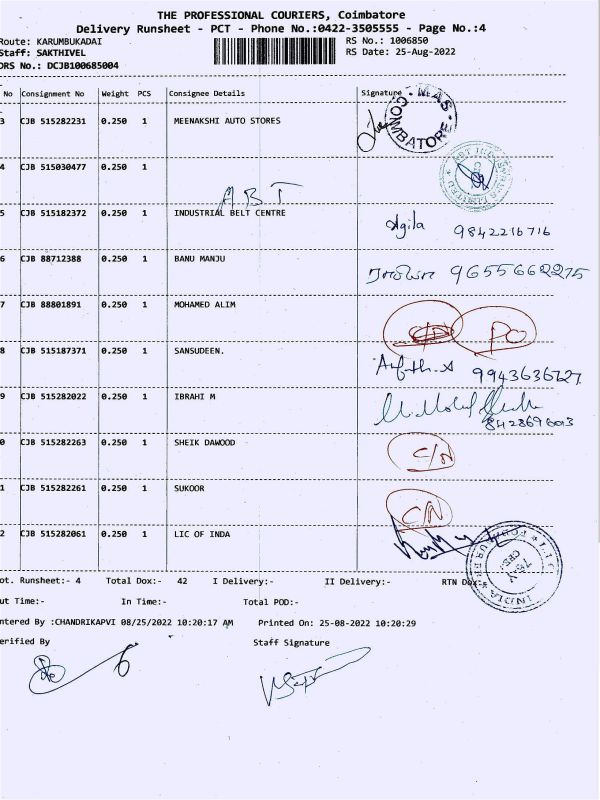 THE PROFESSIONAL COURIERS, Coimbatore
Delivery Runsheet - PCT - Phone No.:0422-3505555 - Page No.:4
Route: KARUMBUKADAI RS No.: 1006850
Staff: SAKTHIVEL RS Date: 25-Aug-2022
DRS No.: DCJB100685004
No Consignment No Weight PCS Consignee Details Signature
3 CJB 515282231 0.250 1 MEENAKSHI AUTO STORES
MAS COIMBATORE
4 CJB 515030477 0.250 1
ABT
5 CJB 515182372 0.250 1 INDUSTRIAL BELT CENTRE Agila 9842216716
6 CJB 88712388 0.250 1 BANU MANJU 96556662275
7 CJB 88801891 0.250 1 MOHAMED ALIM C/N PO
8 CJB 515187371 0.250 1 SANSUDEEN. 9943636727
9 CJB 515282022 0.250 1 IBRAHI M
0 CJB 515282263 0.250 1 SHEIK DAWOOD C/N
1 CJB 515282261 0.250 1 SUKOOR C/N
2 CJB 515282061 0.250 1 LIC OF INDA
ot. Runsheet:- 4 Total Dox:- 42 I Delivery:- II Delivery:- RTN Dox:-
ut Time:- In Time:- Total POD:-
ntered By :CHANDRIKAPVI 08/25/2022 10:20:17 AM Printed On: 25-08-2022 10:20:29
erified By Staff Signature